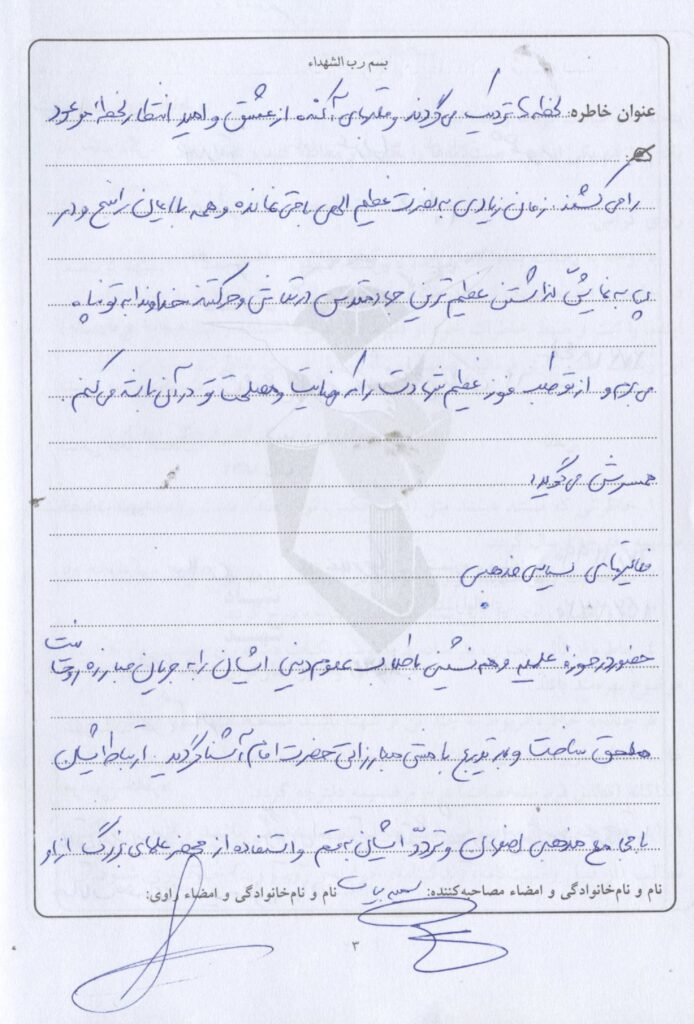 بسم رب الشهداء
عنوان خاطره: لحظه ها نزدیک می گردند و قلبهای آکنده از عشق و امید انتظار لحظهٔ موعود
را می کشند زمان زیادی به نصرت عظیم الهی باقی نمانده و همه با ایمان راسخ و در
پی به نمایش گذاشتن عظیم ترین جهاد مقدس در تلاش و حرکتند. خداوندا به تو پناه
می بریم و از تو طلب فوز عظیم شهادت را که رضایت و مصلحت تو در آن باشد می کنم.
همسرش می گوید:
فعالیتهای سیاسی مذهبی
حضور در حوزهٔ علمیه و هم نشینی با طلاب علوم دینی ایشان را به جریان مبارزه روحانیت
ملحق ساخت و به تدریج با مشی مبارزاتی حضرت امام آشنا گردید. ارتباط ایشان
با مجامع مذهبی اصفهان و تردّد ایشان به قم و استفاده از محضر علمای بزرگ از او
نام و نام‌خانوادگی و امضاء مصاحبه‌کننده: نام و نام‌خانوادگی و امضاء راوی:
۳